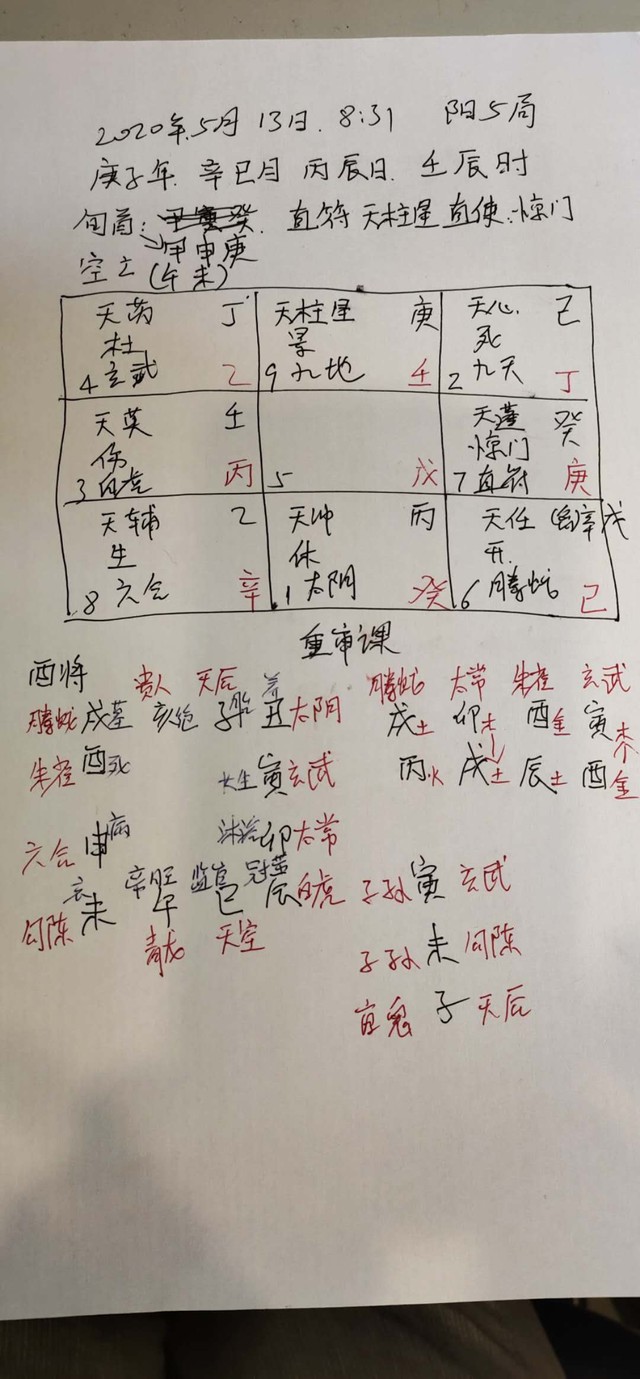 2020年.5月 13日. 8:31 阳5局
庚子年. 辛巳月 丙辰日. 壬辰时
旬首: 直符 天柱星 直使:惊门
甲申庚
空亡(午未)
天芮 丁 天柱星 庚 天心 己
杜 景 死
4 玄武 乙 9 九地 壬 2 九天 丁
天英 壬 天蓬 癸
伤 惊门
3 白虎 丙 5 戊 7 直符 庚
天辅 乙 天冲 丙 天任 辛戊
生 休 开
8 六合 辛 1 太阴 癸 6 腾蛇 己
重审课
酉将 贵人 天后 养 腾蛇 太常 朱雀 玄武
腾蛇 戌墓 亥绝 子胎 丑太阴 戌土 卯木 酉金 寅木
朱雀 酉死 长生 寅玄武 丙火 戌土 辰土 酉金
六合 申病 沐浴 卯太常
衰 帝旺 冠
勾陈 未 午 巳 辰白虎 子孙 寅 玄武
青龙 天空 子孙 未 勾陈
官鬼 子 天后